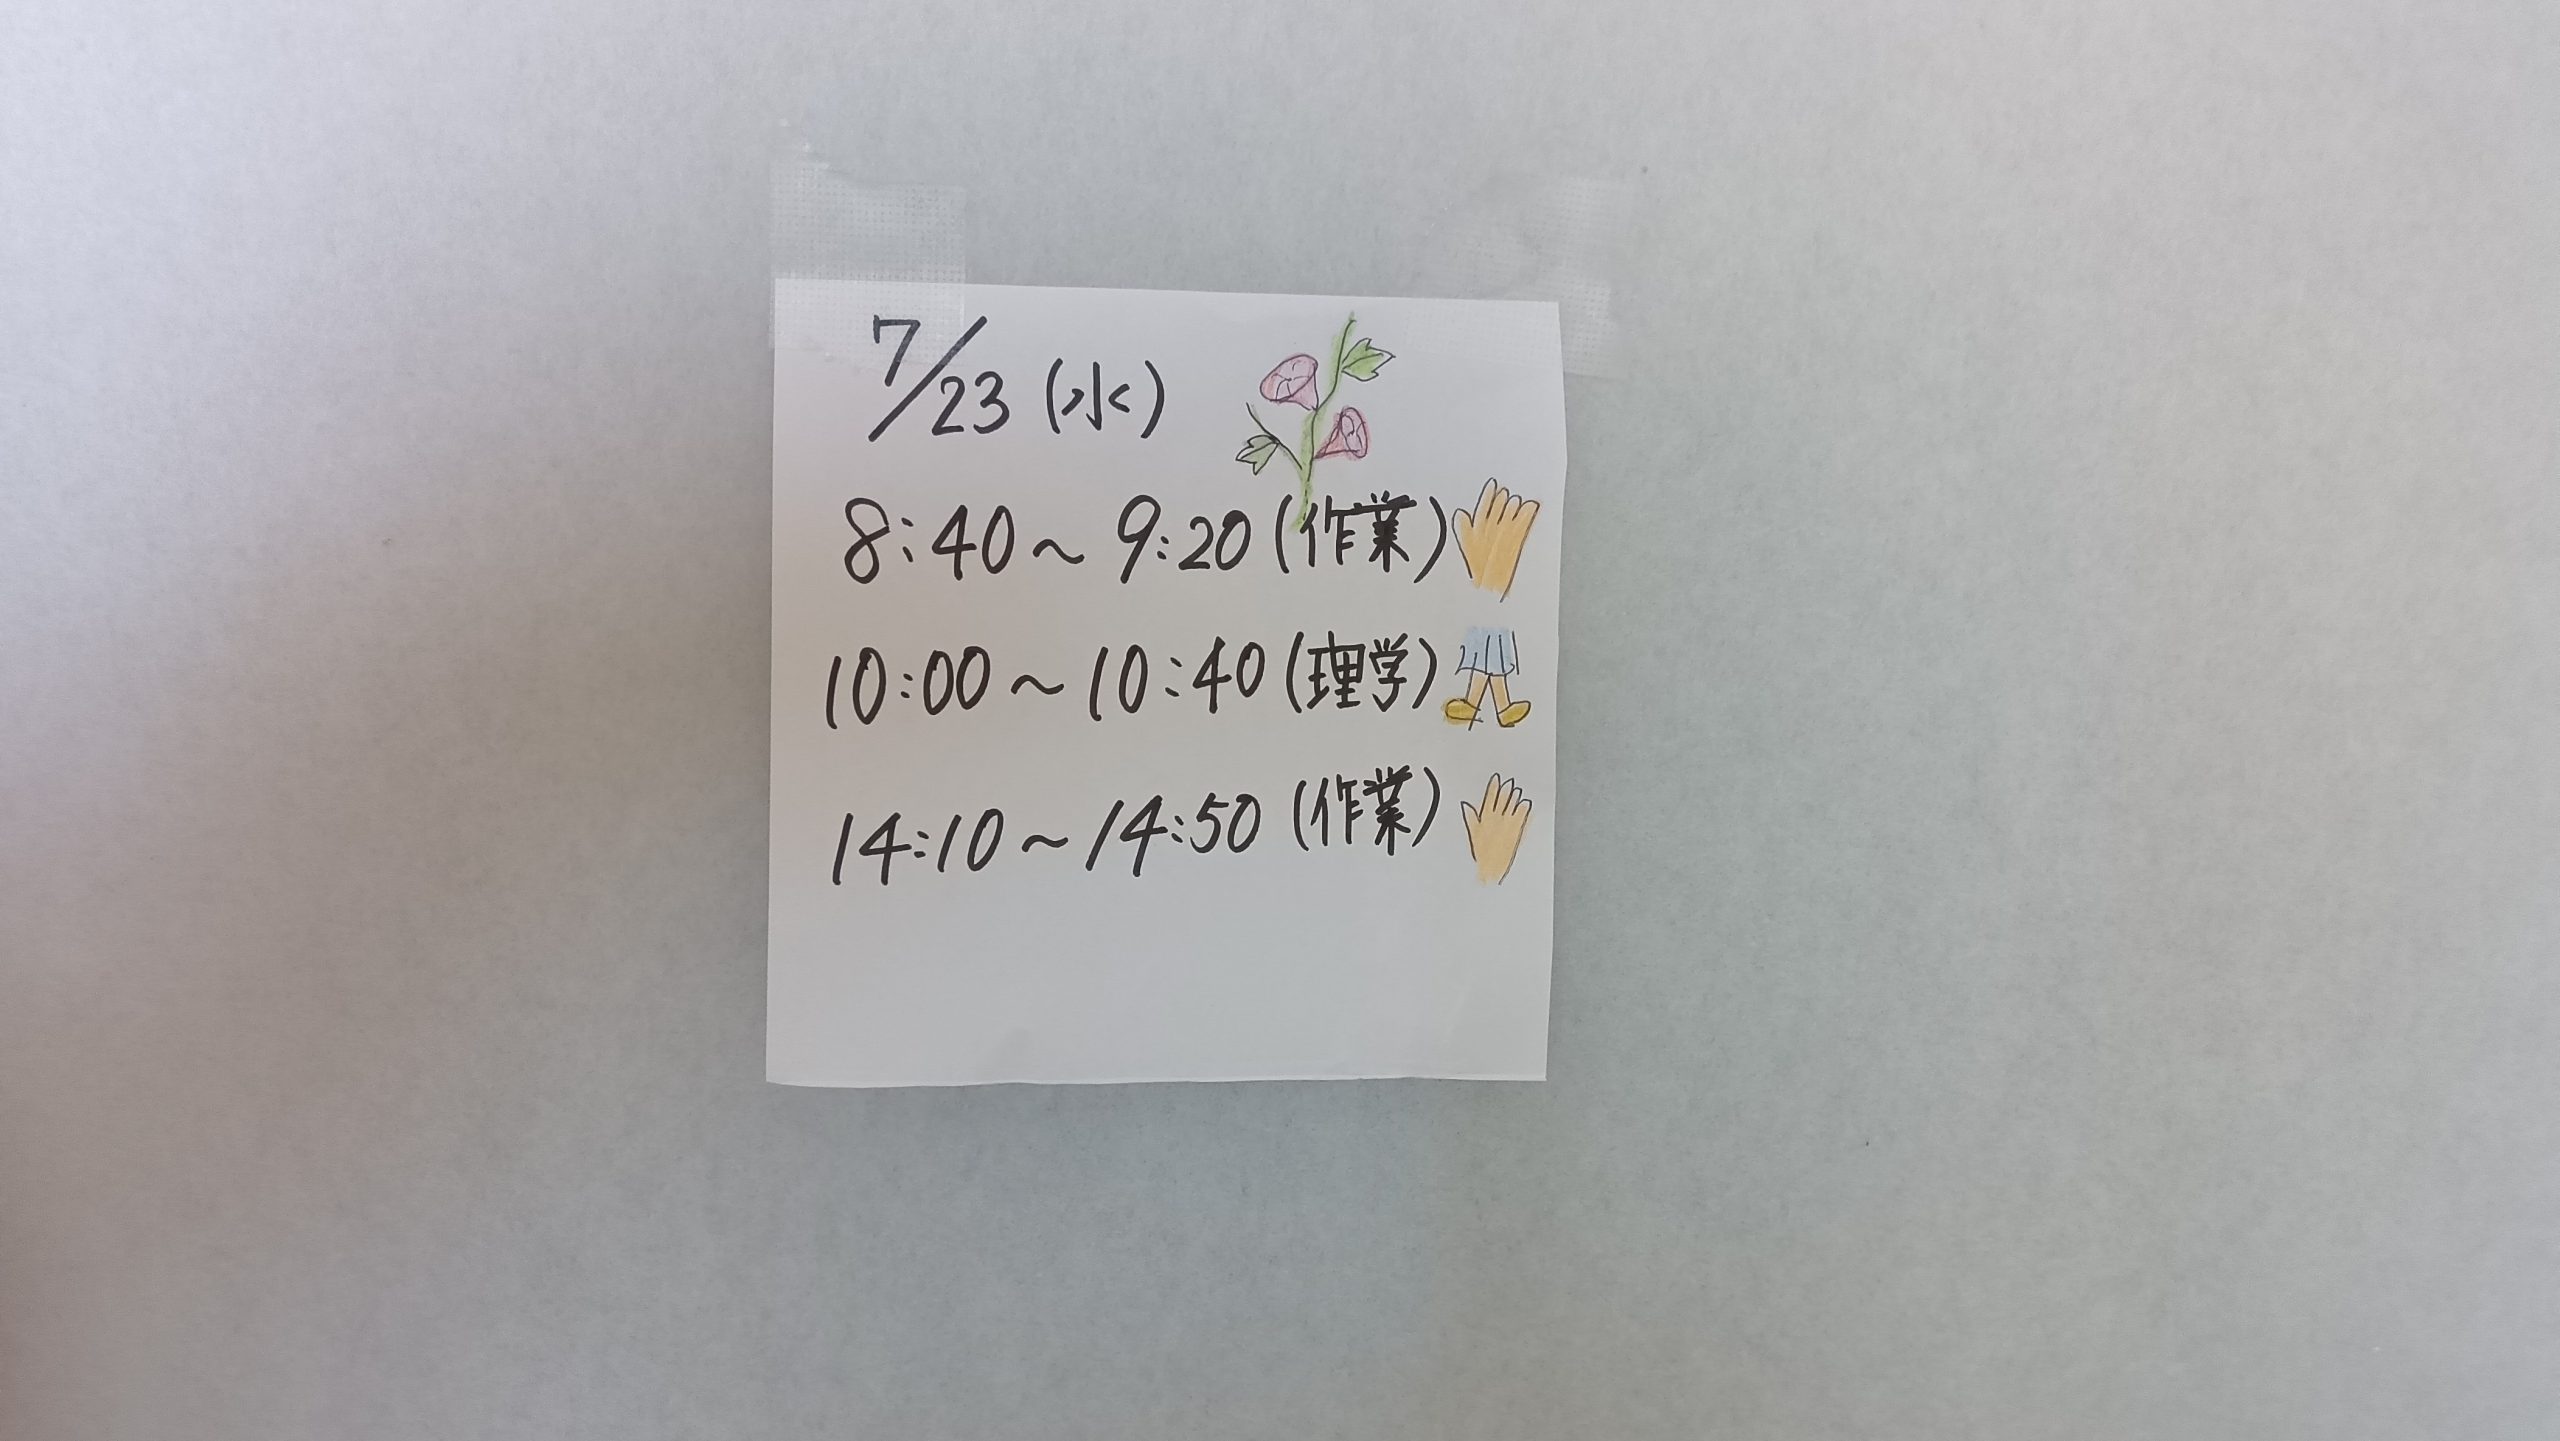 7/23 (水)
8:40～9:20 (作業)
10:00～10:40 (理学)
14:10～14:50 (作業)